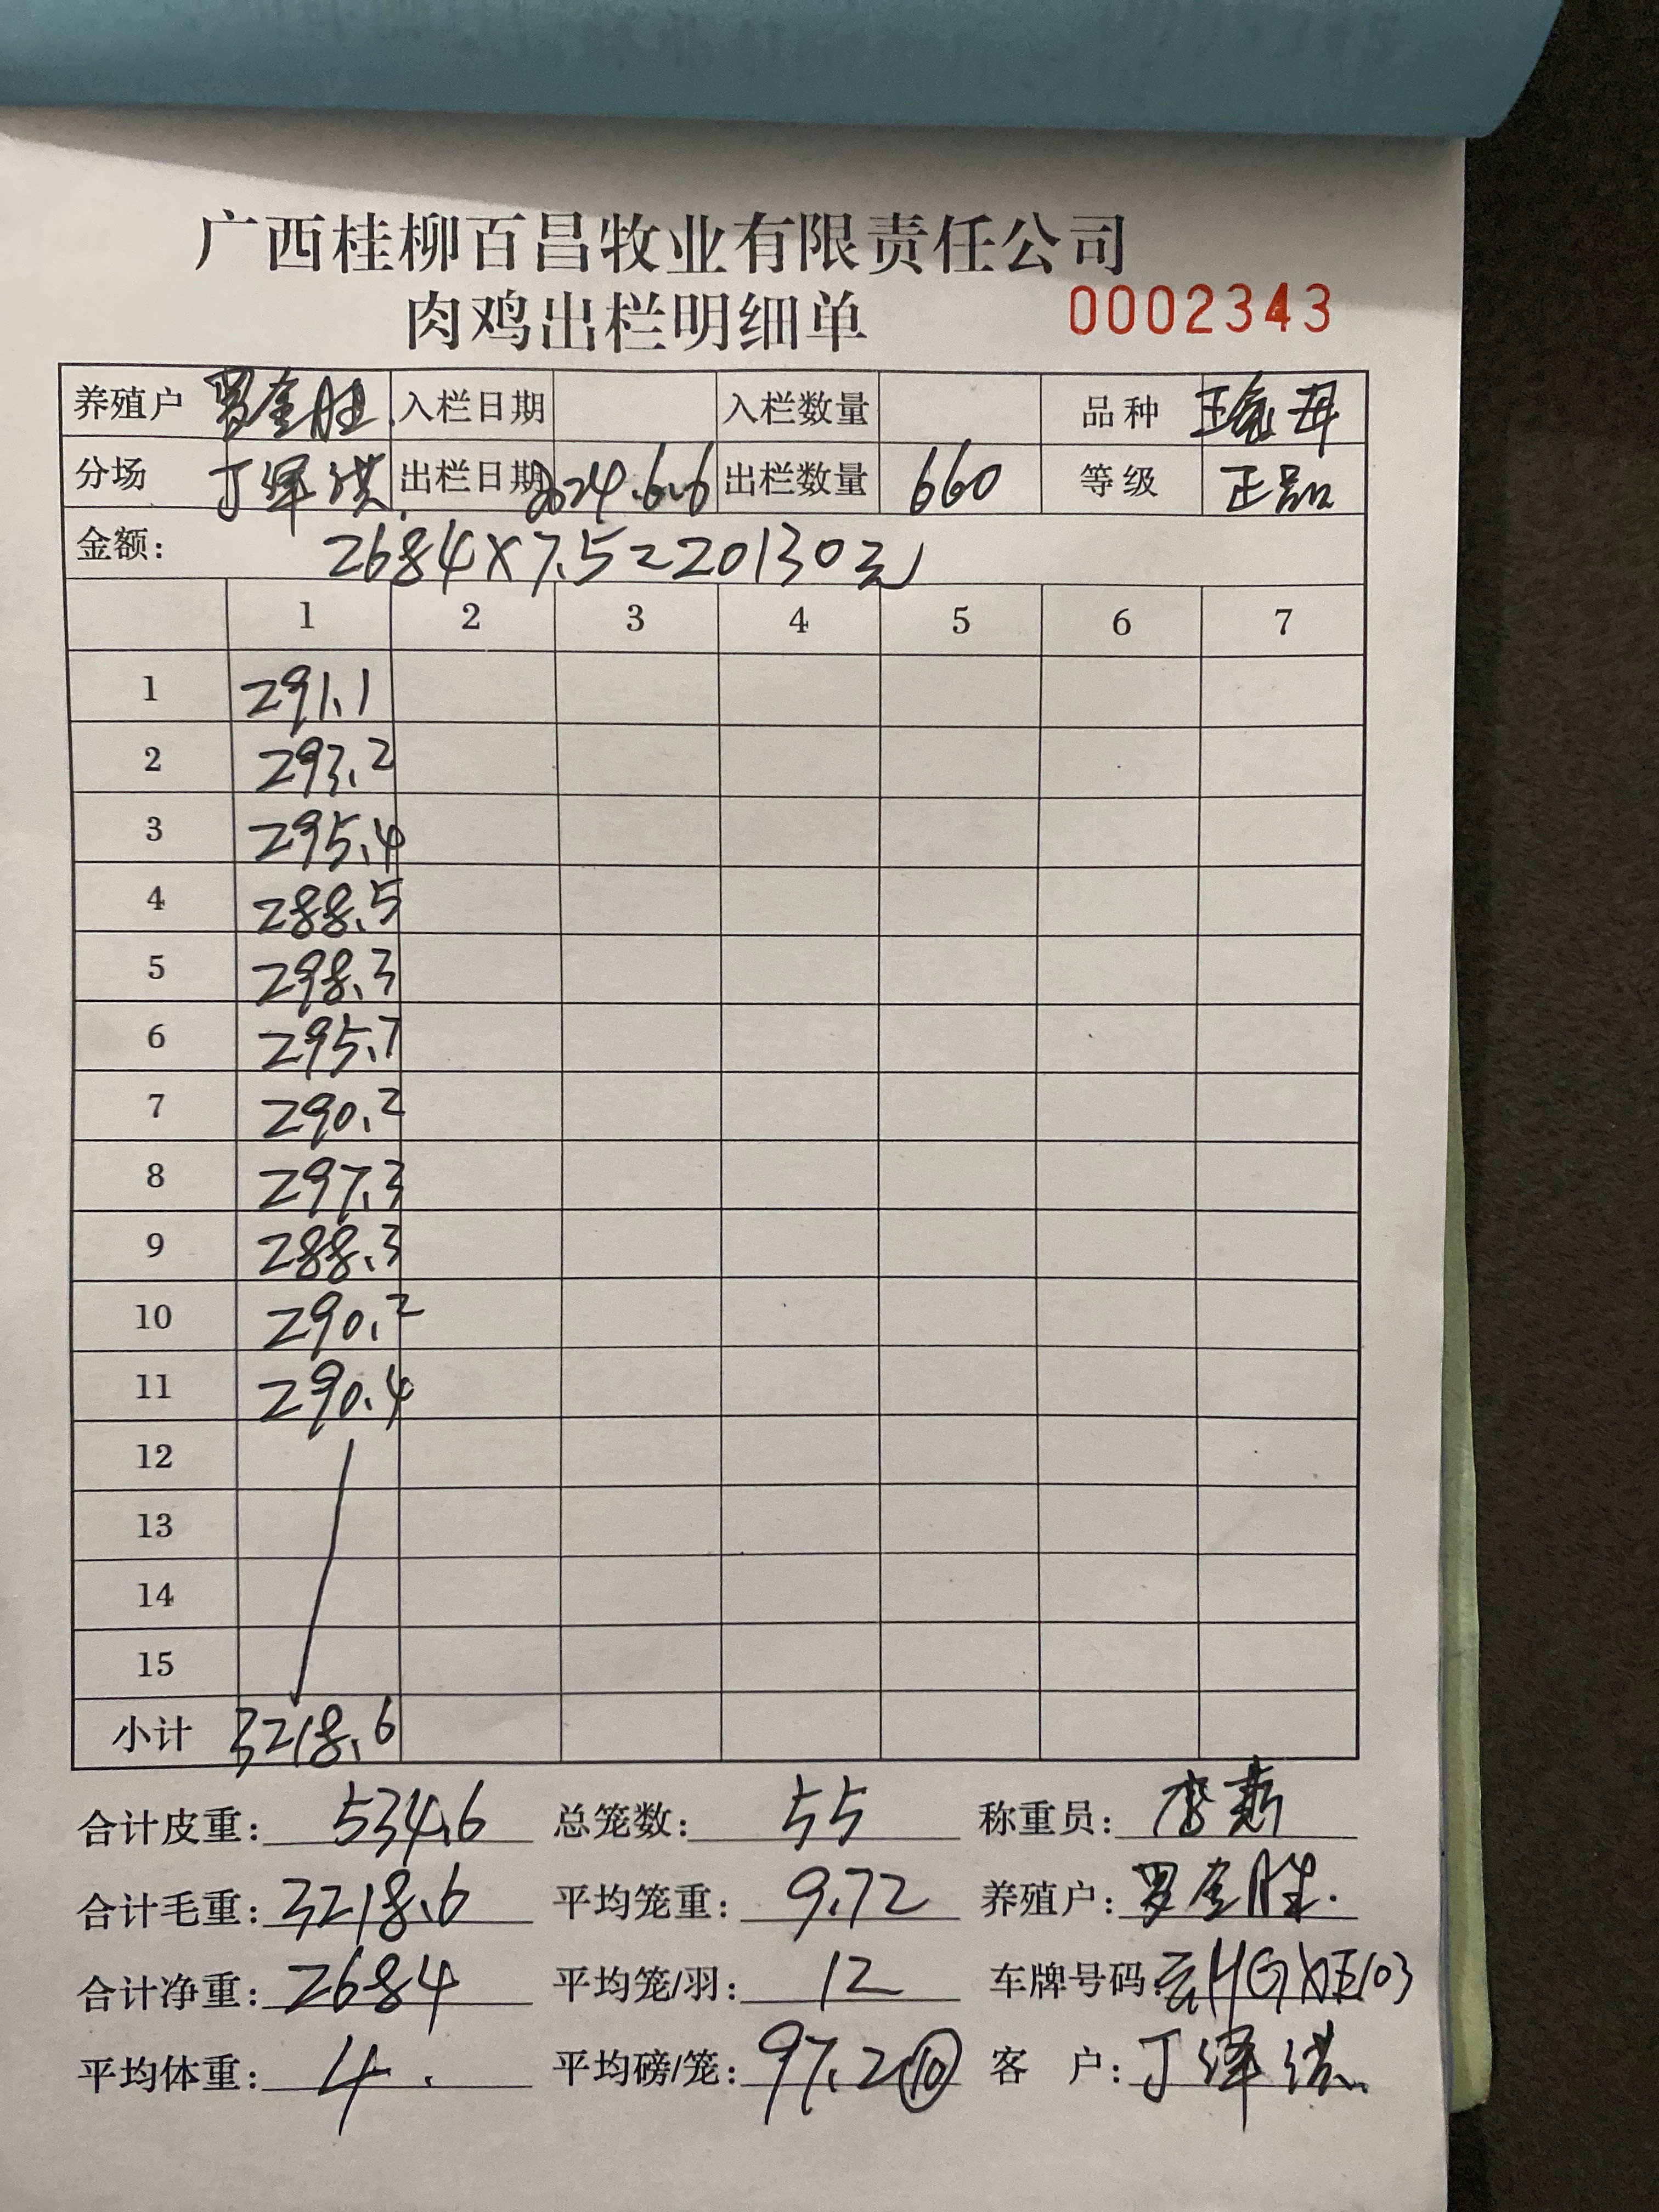 广西桂柳百昌牧业有限责任公司
肉鸡出栏明细单 0002343
养殖户 罗奎胜 入栏日期 入栏数量 品种
分场 丁泽洪 出栏日期 2024.6.6 出栏数量 660 等级 正品
金额: 2684×7.5=20130元
1 2 3 4 5 6 7
1 291.1
2 293.2
3 295.4
4 288.5
5 298.3
6 295.7
7 290.2
8 297.3
9 288.3
10 290.2
11 290.4
12
13
14
15
小计 3218.6
合计皮重: 534.6 总笼数: 55 称重员:
合计毛重: 3218.6 平均笼重: 9.72 养殖户: 罗奎胜.
合计净重: 2684 平均笼/羽: 12 车牌号码:
平均体重: 4. 平均磅/笼: 97.2⑩ 客 户: 丁泽洪